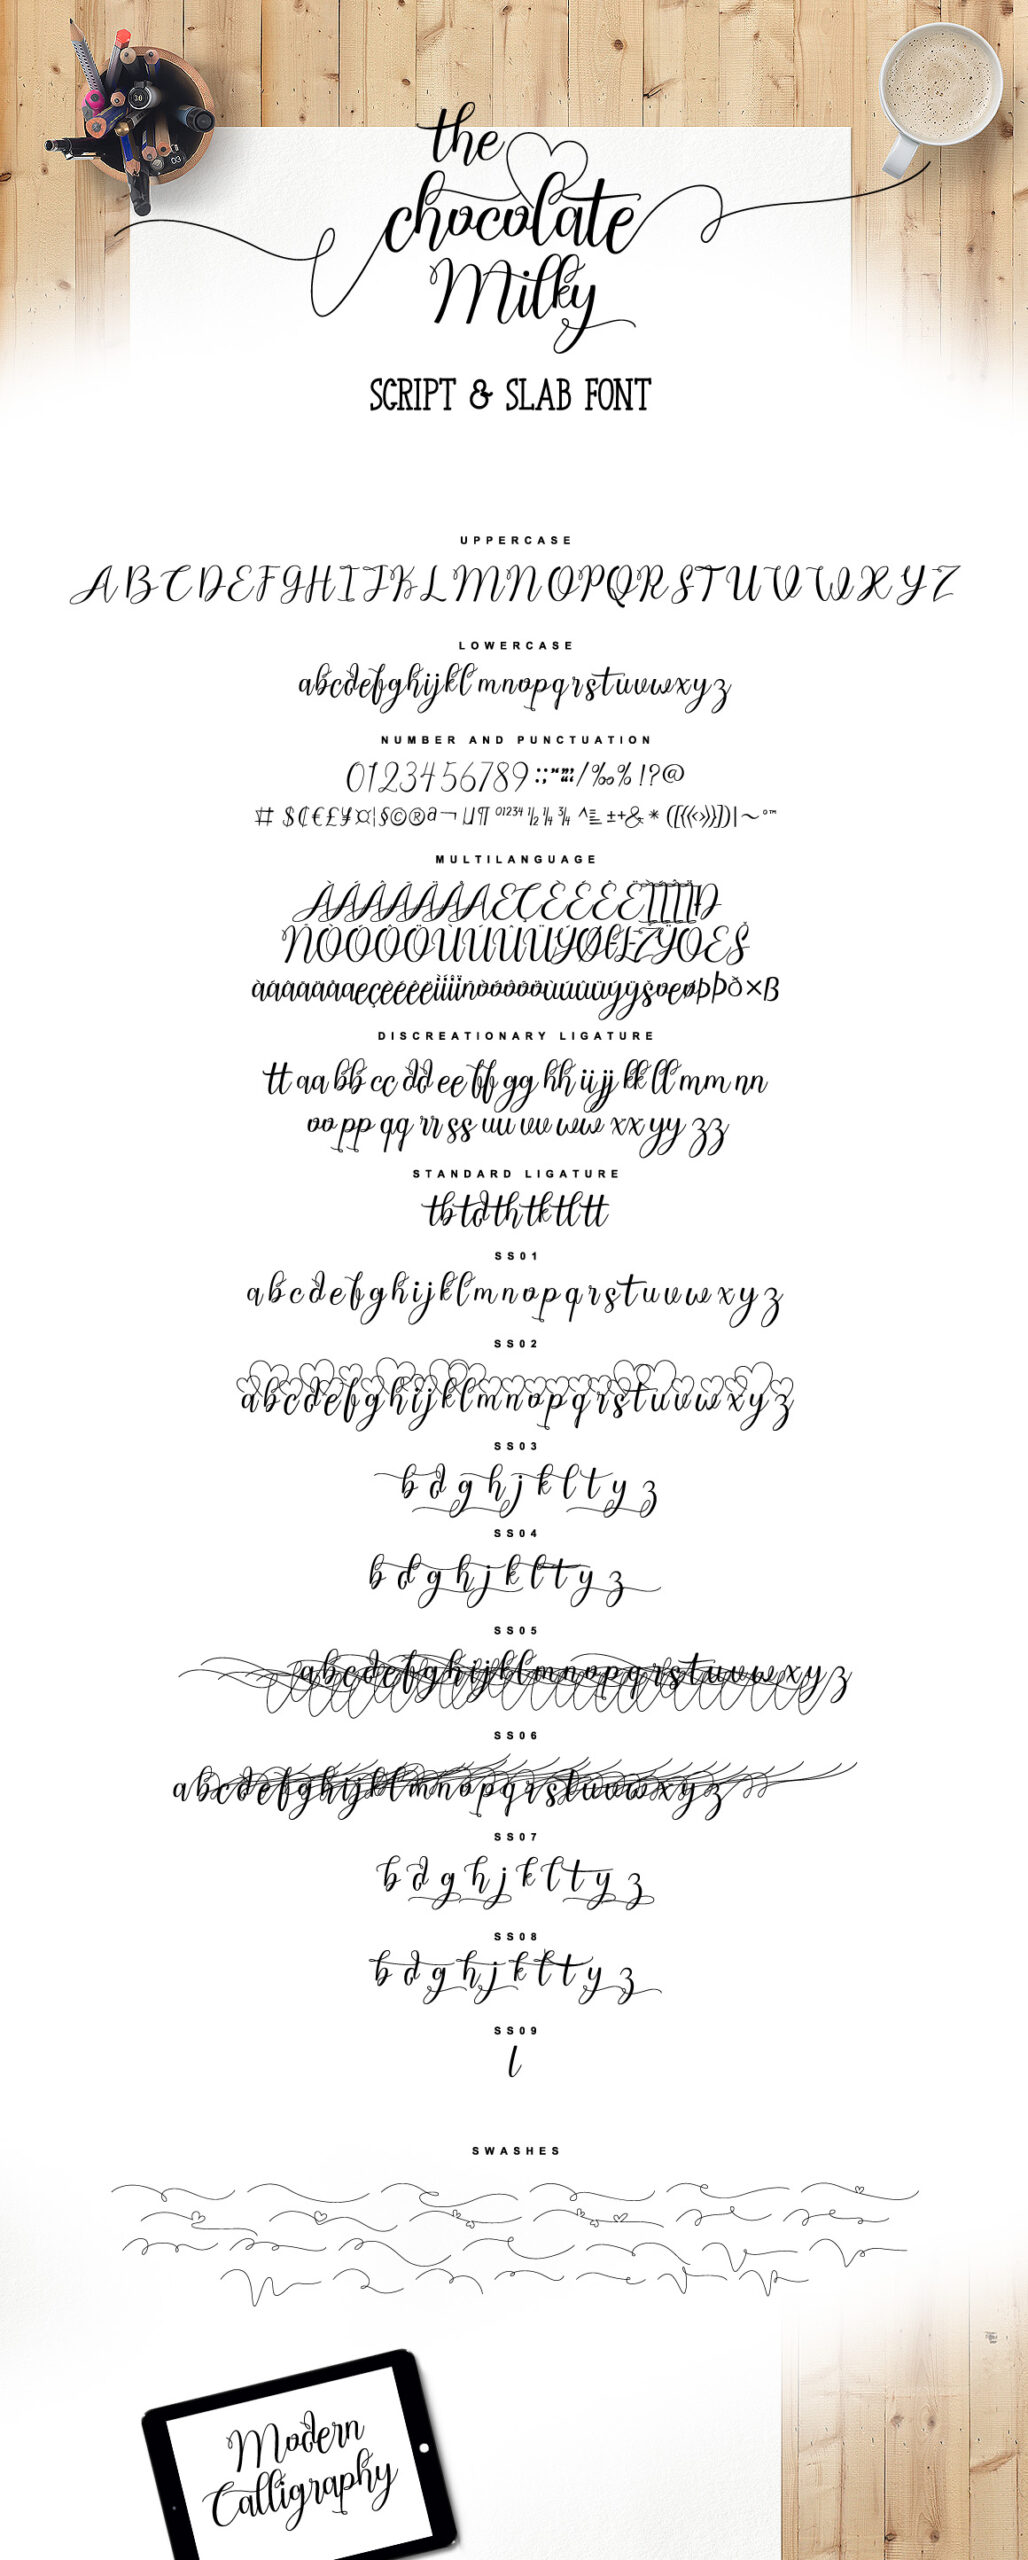 the
chocolate
Milky
SCRIPT & SLAB FONT
UPPERCASE
ABCDEFGHIJKLMNOPQRSTUVWXYZ
LOWERCASE
abcdefghijklmnopqrstuvwxyz
NUMBER AND PUNCTUATION
0123456789 :;"“”‘’/‰%!?@
# $₵€£¥¤¦§©®ª¬µ¶ 01234 ½ ¼ ¾ ^±+& * ([{«‹›»}])|~°™
MULTILANGUAGE
ÀÁÂÃÄÅÆÇÈÉÊËÌÍÎÏÐ
ÑÒÓÔÕÖÙÚÛÜÝØŁŽŸŒŠ
àáâãäåæçèéêëìíîïñòóôõöùúûüýÿšœøþÞð×ß
DISCREATIONARY LIGATURE
tt aa bb cc dd ee ff gg hh ii jj kk ll mm nn
oo pp qq rr ss uu vv ww xx yy zz
STANDARD LIGATURE
tb td th tk tl tt
SS01
abcdefghijklmnopqrstuvwxyz
SS02
abcdefghijklmnopqrstuvwxyz
SS03
b d g h j k l t y z
SS04
b d g h j k l t y z
SS05
abcdefghijklmnopqrstuvwxyz
SS06
abcdefghijklmnopqrstuvwxyz
SS07
b d g h j k l t y z
SS08
b d g h j k l t y z
SS09
l
SWASHES
Modern
Calligraphy